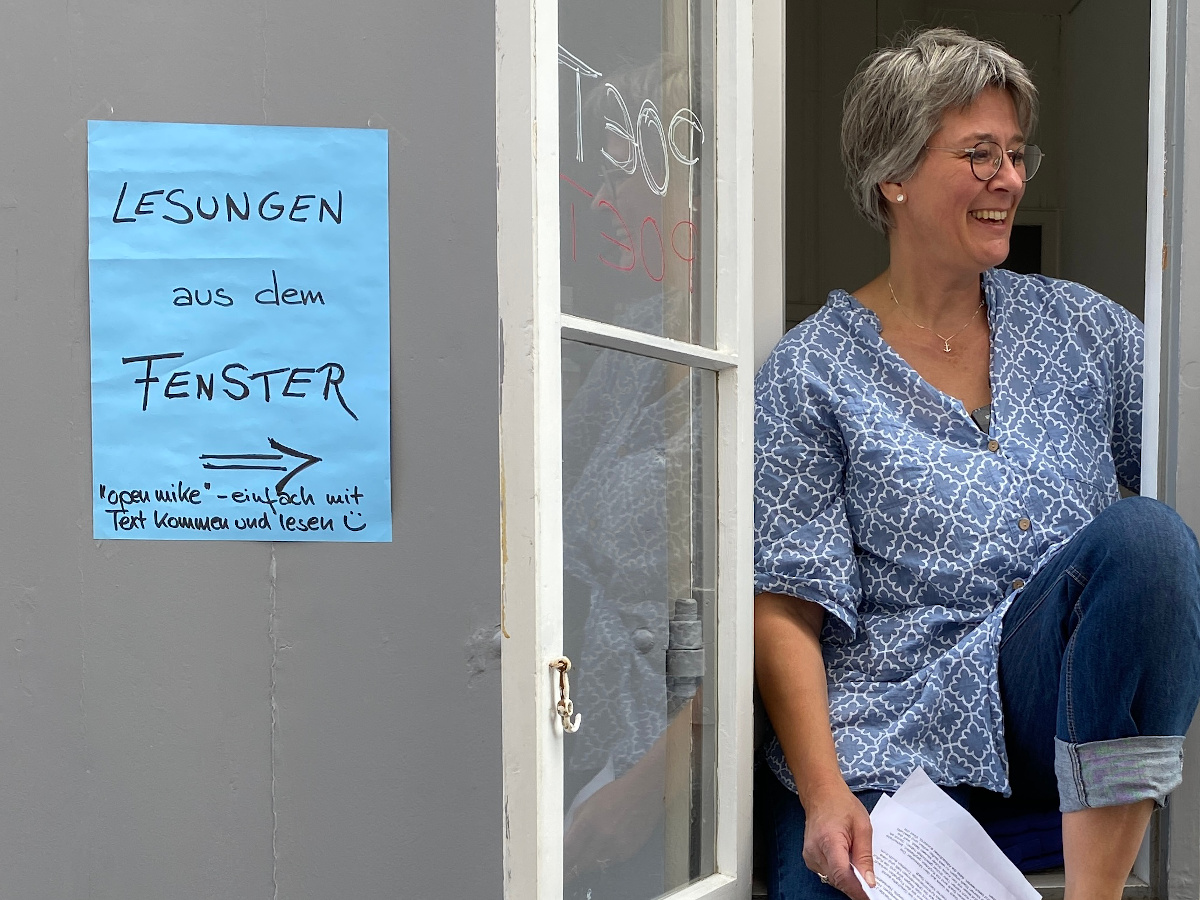 LESUNGEN
aus dem
FENSTER
"open mike" - einfach mit
Text kommen und lesen
POET
POET